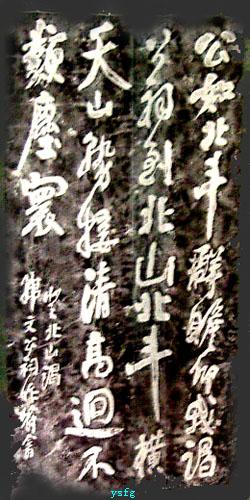 公如北斗群瞻仰我謁
公祠到北山北斗横
天山勢接清高迴不
類塵寰
北山謁
韓文公祠
ysfg